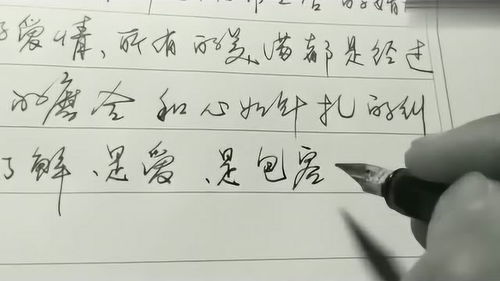 的婚
爱情、所有的美满都是经过
的磨合和心如针扎的纠
了解、是爱、是包容